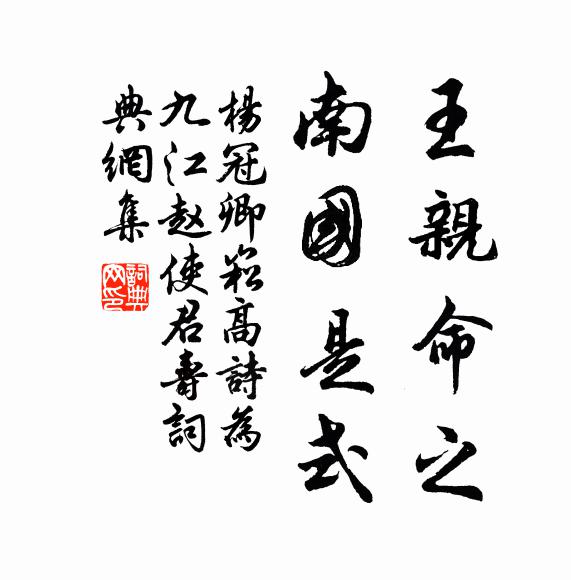 王親命之
南國是式
楊冠卿崧高詩為
九江赵使君壽詞
典網集
詞典
网印